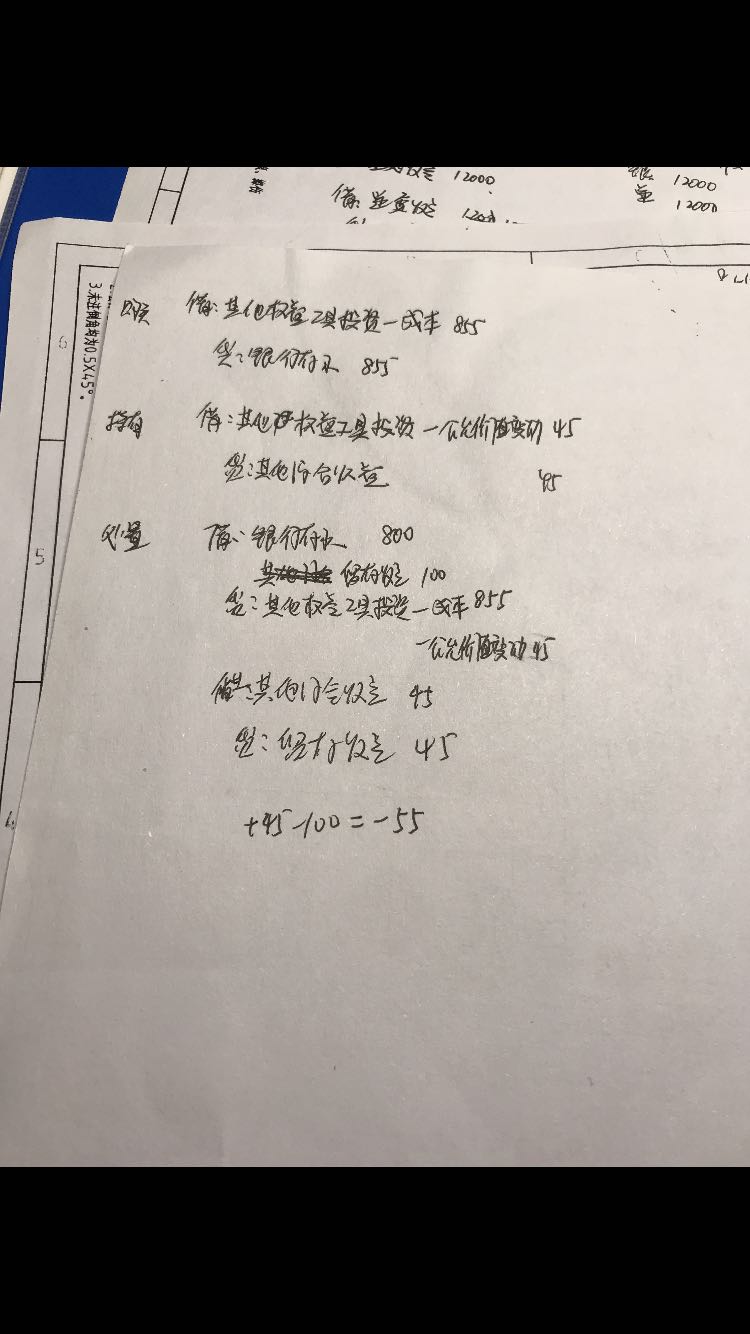 12000
12000
借:
12000
3.未注倒角均为0.5X45°。
6
借:其他权益工具投资—成本 855
贷:银行存款 855
持有 借:其他权益工具投资—公允价值变动 45
贷:其他综合收益 45
5
处置 借:银行存款 800
留存收益 100
贷:其他权益工具投资—成本 855
—公允价值变动 45
借:其他综合收益 45
贷:留存收益 45
+45-100=-55